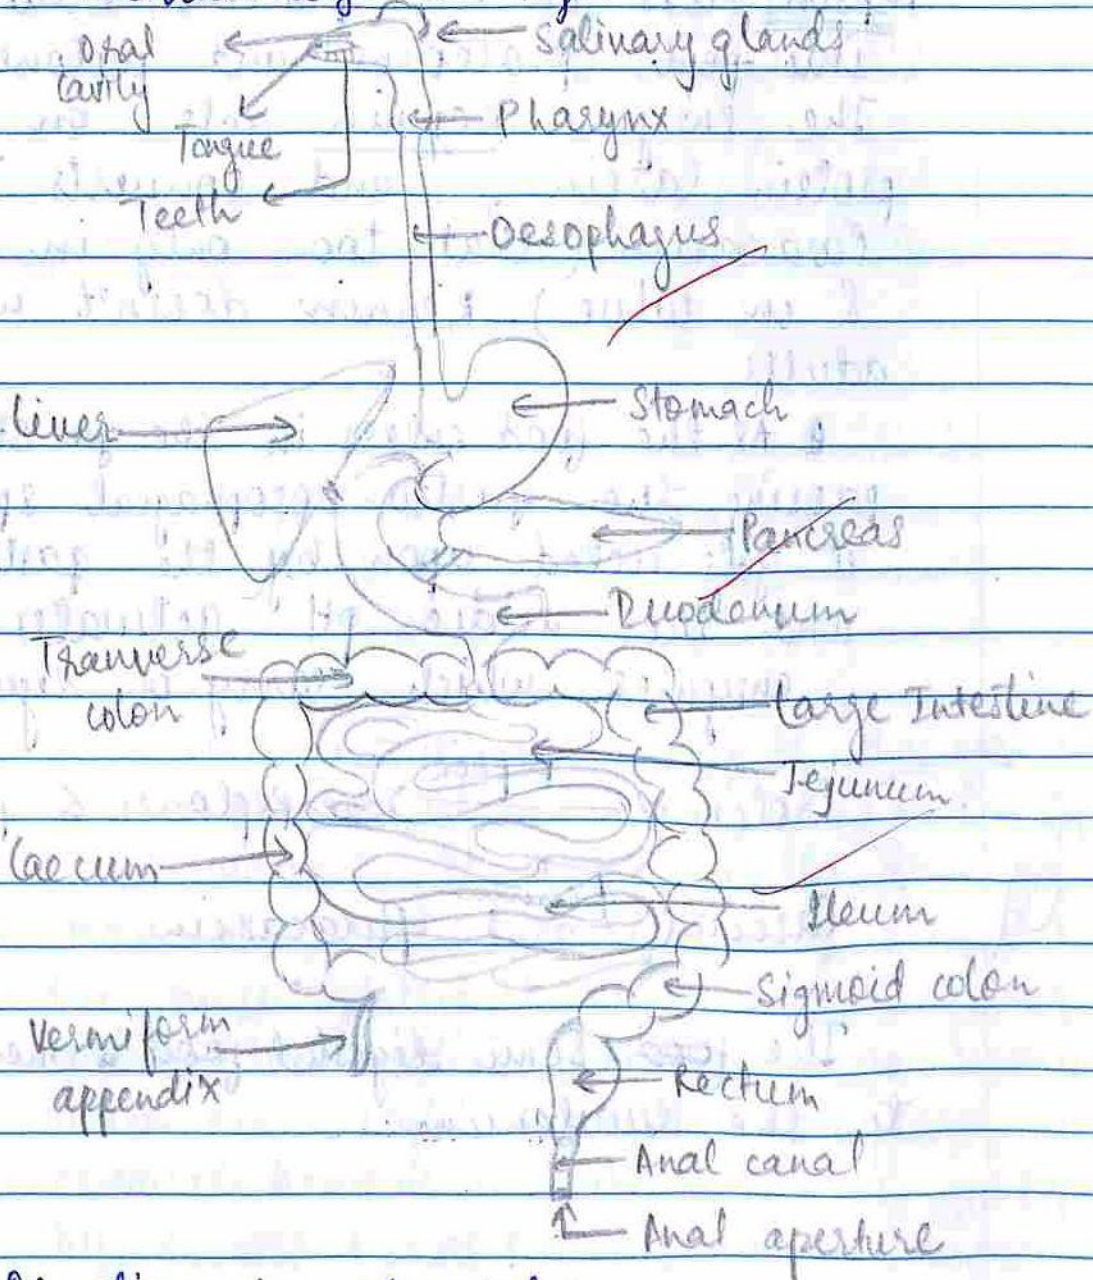 Oral
cavity
Salinary glands
Tongue
Pharynx
Teeth
Oesophagus
Liver
Stomach
Pancreas
Duodenum
Tranverse
colon
Large Intestine
Jejunum
Caecum
Ileum
Sigmoid colon
Vermiform
appendix
Rectum
Anal canal
Anal aperture